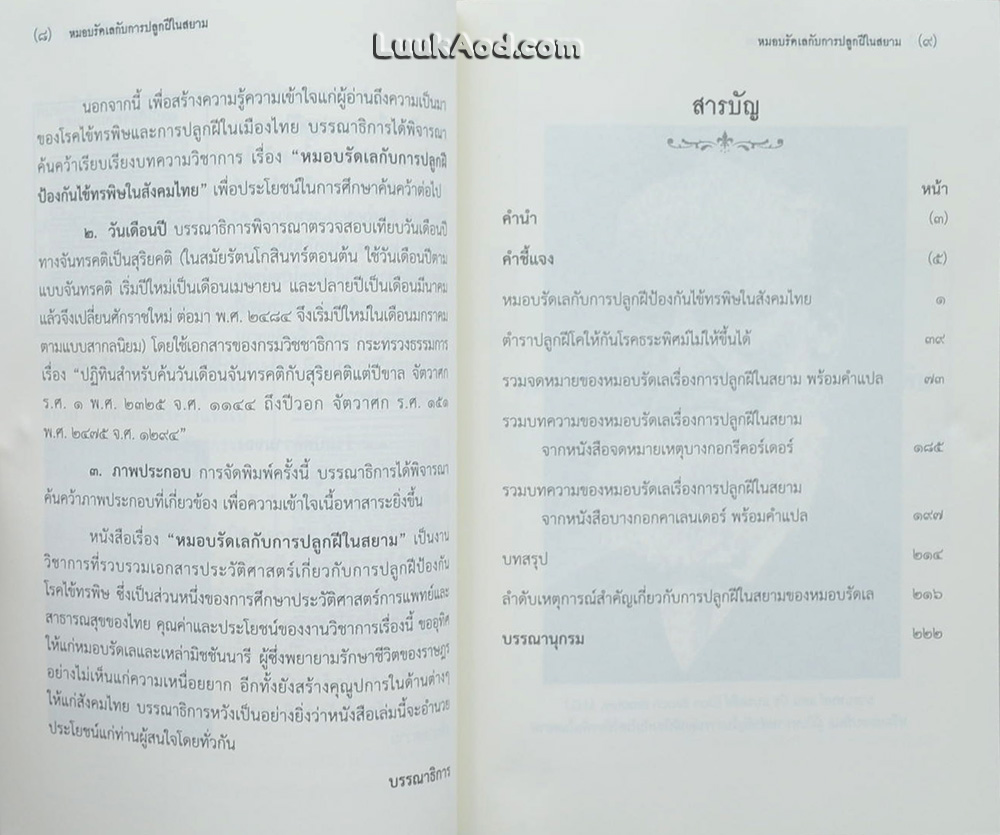 (๘) หมอบรัดเลกับการปลูกฝีในสยาม
LuukAod.com
นอกจากนี้ เพื่อสร้างความรู้ความเข้าใจแก่ผู้อ่านถึงความเป็นมา
ของโรคไข้ทรพิษและการปลูกฝีในเมืองไทย บรรณาธิการได้พิจารณา
ค้นคว้าเรียบเรียงบทความวิชาการ เรื่อง “หมอบรัดเลกับการปลูกฝี
ป้องกันไข้ทรพิษในสังคมไทย” เพื่อประโยชน์ในการศึกษาค้นคว้าต่อไป
๒. วันเดือนปี บรรณาธิการพิจารณาตรวจสอบเทียบวันเดือนปี
ทางจันทรคติเป็นสุริยคติ (ในสมัยรัตนโกสินทร์ตอนต้น ใช้วันเดือนปีตาม
แบบจันทรคติ เริ่มปีใหม่เป็นเดือนเมษายน และปลายปีเป็นเดือนมีนาคม
แล้วจึงเปลี่ยนศักราชใหม่ ต่อมา พ.ศ. ๒๔๘๔ จึงเริ่มปีใหม่ในเดือนมกราคม
ตามแบบสากลนิยม) โดยใช้เอกสารของกรมวิชชาธิการ กระทรวงธรรมการ
เรื่อง “ปฏิทินสำหรับค้นวันเดือนจันทรคติกับสุริยคติแต่ปีขาล จัตวาศก
ร.ศ. ๑ พ.ศ. ๒๓๒๕ จ.ศ. ๑๑๔๔ ถึงปีวอก จัตวาศก ร.ศ. ๑๕๑
พ.ศ. ๒๔๗๕ จ.ศ. ๑๒๙๔”
๓. ภาพประกอบ การจัดพิมพ์ครั้งนี้ บรรณาธิการได้พิจารณา
ค้นคว้าภาพประกอบที่เกี่ยวข้อง เพื่อความเข้าใจเนื้อหาสาระยิ่งขึ้น
หนังสือเรื่อง “หมอบรัดเลกับการปลูกฝีในสยาม” เป็นงาน
วิชาการที่รวบรวมเอกสารประวัติศาสตร์เกี่ยวกับการปลูกฝีป้องกัน
โรคไข้ทรพิษ ซึ่งเป็นส่วนหนึ่งของการศึกษาประวัติศาสตร์การแพทย์และ
สาธารณสุขของไทย คุณค่าและประโยชน์ของงานวิชาการเรื่องนี้ ขออุทิศ
ให้แก่หมอบรัดเลและเหล่ามิชชันนารี ผู้ซึ่งพยายามรักษาชีวิตของราษฎร
อย่างไม่เห็นแก่ความเหนื่อยยาก อีกทั้งยังสร้างคุณูปการในด้านต่างๆ
ให้แก่สังคมไทย บรรณาธิการหวังเป็นอย่างยิ่งว่าหนังสือเล่มนี้จะอำนวย
ประโยชน์แก่ท่านผู้สนใจโดยทั่วกัน
บรรณาธิการ
หมอบรัดเลกับการปลูกฝีในสยาม (๙)
สารบัญ
หน้า
คำนำ (๓)
คำชี้แจง (๕)
หมอบรัดเลกับการปลูกฝีป้องกันไข้ทรพิษในสังคมไทย ๑
ตำราปลูกฝีโคให้กันโรคธระพิศม์ไม่ให้ขึ้นได้ ๓๙
รวมจดหมายของหมอบรัดเลเรื่องการปลูกฝีในสยาม พร้อมคำแปล ๗๓
รวมบทความของหมอบรัดเลเรื่องการปลูกฝีในสยาม
จากหนังสือจดหมายเหตุบางกอกรีคอร์เดอร์ ๑๘๕
รวมบทความของหมอบรัดเลเรื่องการปลูกฝีในสยาม
จากหนังสือบางกอกคาเลนเดอร์ พร้อมคำแปล ๑๙๗
บทสรุป ๒๑๔
ลำดับเหตุการณ์สำคัญเกี่ยวกับการปลูกฝีในสยามของหมอบรัดเล ๒๑๖
บรรณานุกรม ๒๒๒